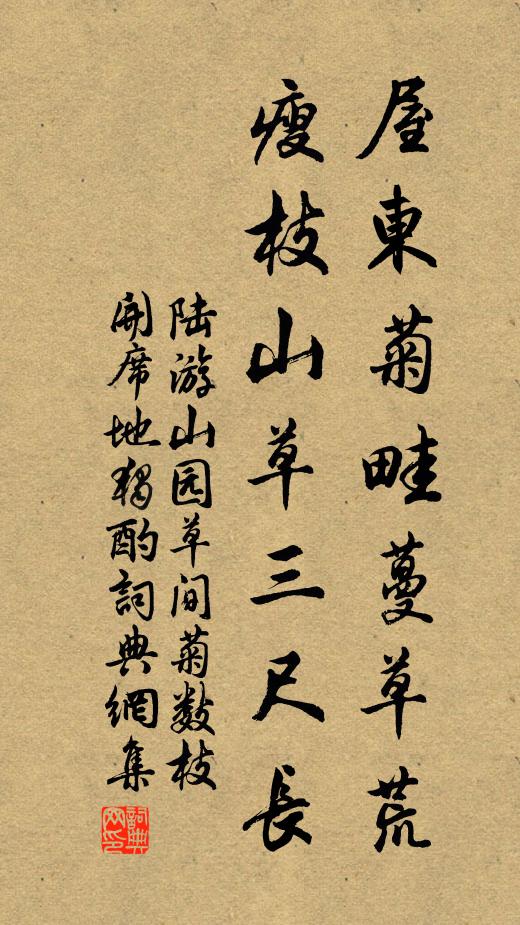 屋東菊畦蔓草荒
瘦枝山草三尺長
陆游山园草间菊数枝
開席地獨酌詞典網集
詞典网印